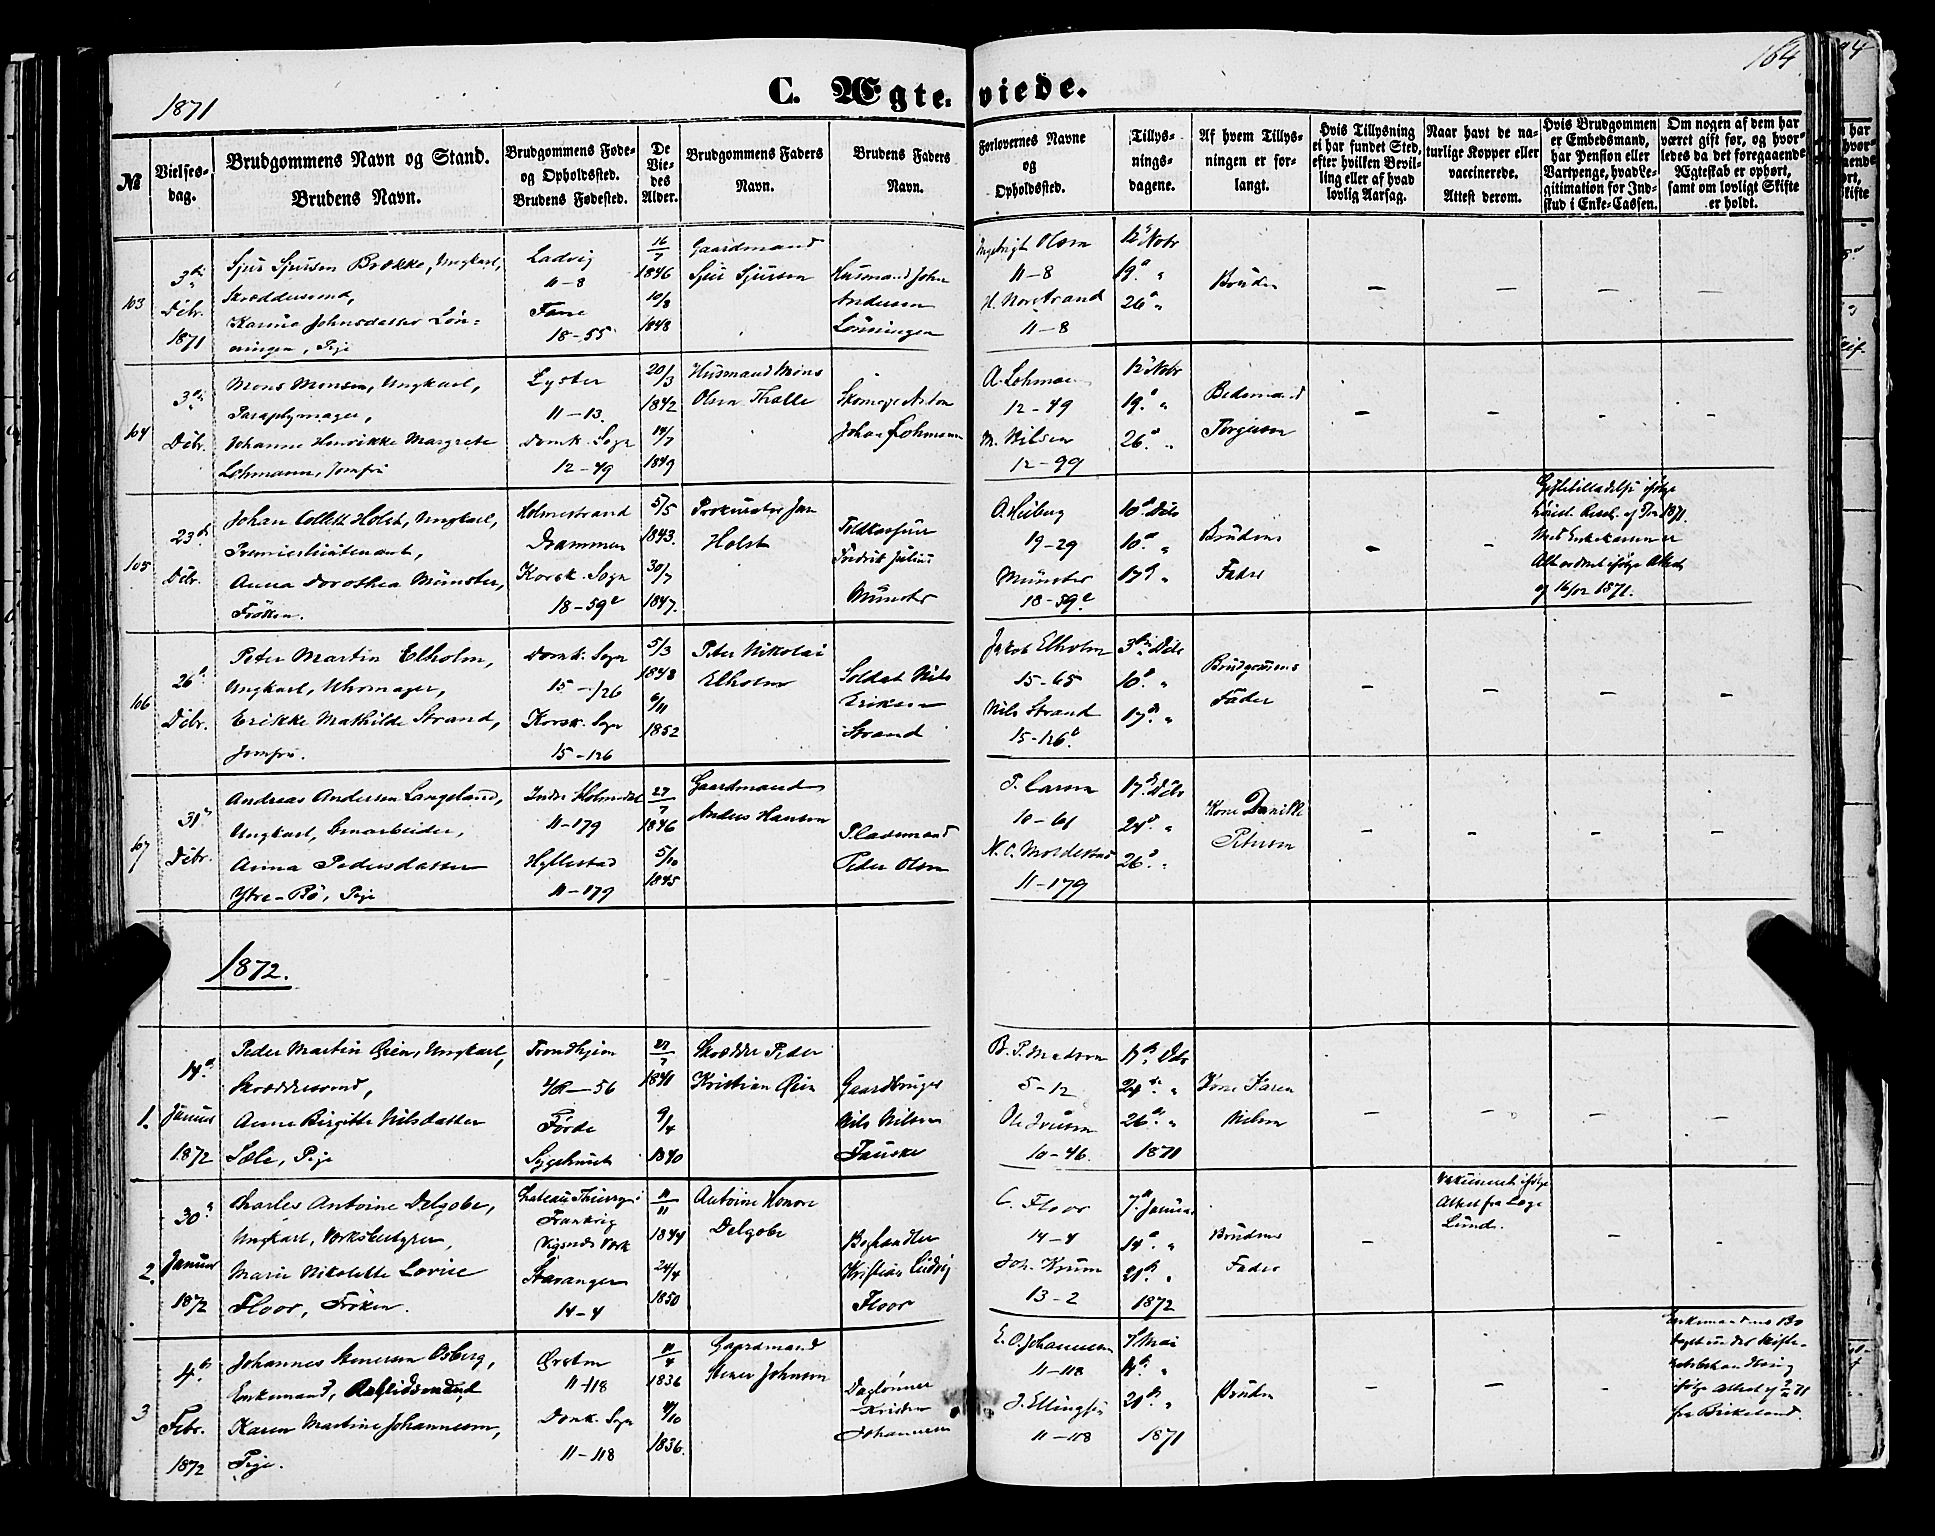 1871
C. Ægte-viede.
164
№
Vielses-
dag.
Brudgommens Navn og Stand.
Brudens Navn.
Brudgommens Føde-
og Opholdssted.
Brudens Fødested.
De
Vie-
des
Alder.
Brudgommens Faders
Navn.
Brudens Faders
Navn.
Forlovernes Navne
og
Opholdssted.
Tillys-
nings-
dagene.
Af hvem Tillys-
ningen er for-
langt.
Hvis Tillysning
ei har fundet Sted,
efter hvilken Bevil-
ling eller af hvad
lovlig Aarsag.
Naar havt de na-
turlige Kopper eller
vaccinerede.
Attest derom.
Hvis Brudgommen
er Embedsmand,
har Pension eller
Vartpenge, hvad Le-
gitimation for Ind-
skud i Enke-Cassen.
Om nogen af dem har
været gift før, og hvor-
ledes da det foregaaende
Ægteskab er ophørt,
samt om lovligt Skifte
er holdt.
103
3die
Debr.
1871
Sjur Sjursen Brække, Ungkarl,
Skræddersvend,
Karina Johnsdatter Løn-
ningen, Pige
Ladvig
11-8
Fane
18-55
16/7
1846
10/8
1848
Gaardmand
Sjur Sjursen
Husmand John
Andersen
Lønningen
Ingebrigt Olsen
11-8
H. Norstrand
11-8
12te Novbr
19de "
26de "
Bruden
104
3die
Debr.
Mons Monsen, Ungkarl,
Paraplymager,
Johanne Henrikke Margrete
Lohmann, Jomfru
Lyster
11-13
Domk. Sogn
12-49
20/3
1842
14/7
1849
Husmand Mons
Olsen Thalle
Skomager Anton
Johan Lohmann
A. Lohman
12-49
M. Nilsen
12-99
12te Novbr
19de "
26de "
Bedemand
Torgersen
105
23de
Debr.
Johan Collett Holst, Ungkarl,
Premierlieutenant,
Anna Dorothea Münster,
Frøken.
Holmestrand
Drammen
Korsk. Sogn
18-59c
5/5
1843.
30/7
1847.
Prokurator Jan
Holst
Toldkasserer
Fredrik Julius
Münster
O. Heiberg
19-29
Münster
18-59c
10de Debr
10de "
17de "
Brudens
Fader
Giftetilladelse ifølge
Resol. af 1871.
Med Enkekassen er
Alt ordnet ifølge Attest
af 16/12 1871.
106
26de
Debr.
Peter Martin Elholm,
Ungkarl, Uhrmager,
Erikke Mathilde Strand,
Jomfru.
Domk. Sogn
15-126
Korsk. Sogn
15-126
5/3
1848
6/11
1852
Peter Nikolai
Elholm
Soldat Nils
Eriksen
Strand
Jakob Elholm
15-65
Nils Strand
15-126b
3die Debr
10de "
17de "
Brudgommens
Fader
107
31te
Debr.
Andreas Andersen Langeland,
Ungkarl, Arbeider,
Anna Pedersdatter
Ytre-Bø, Pige
Indre Holmedal
11-179
Hyllestad
11-179
27/7
1846
5/10
1845
Gaardmand
Anders Hansen
Pladsmand
Peder Olsen
P. Larsen
10-61
N. C. Moldestad
11-179
17de Debr
24de "
26de "
Kone Danille
Petersen
1872.
1.
14de
Januar
1872
Peder Martin Øien, Ungkarl,
Skræddersvend,
Anne Birgitte Nilsdatter
Sæle, Pige
Trondhjem
56
Førde
Sygehuset
27/7
1841
9/4
1840
Skrædder Peder
Kristian Øien
Gaardbruger
Nils Nilsen
Fauske
B. P. Madsen
5-12
Ole Iversen
10-46.
17de Debr
24de "
26de "
1871
Kone Karen
Nilsen
2.
30te
Januar
1872
Charles Antoine Delgobe,
Ungkarl, Værksbestyrer,
Marie Nikolette Lovise
Floor, Frøken.
Chateau Thierry i
Frankrig
Vigsnes Værk
Stavanger
14-4
11/11
1844
24/4
1850
Antoine Honore
Delgobe
Boghandler
Kristian Ludvig
Floor
C. Floor
14-4
Joh. Krum
13-2
7de Januar
14de "
21de "
1872
Brudens
Fader
Vakcineret ifølge
Attest fra Læge
Lund.
3
4de
Febr.
1872
Johannes Stenersen Osberg,
Enkemand, Arbeidsmand
Karen Martine Johannesen,
Pige.
Ørsten
11-118
Domk. Sogn
11-118
11/4
1836
4/10
1836.
Gaardmand
Stener Johnsen
Daglønner
Kristen
Johannesen
E. O. Johannesen
11-118
J. Ellingsen
11-118
7. Mai
14de "
21de "
1871
Bruden
Enkemandens Bo
taget under Skifte-
rettens Behandling
ifølge Attest af 71
fra Birkeland.